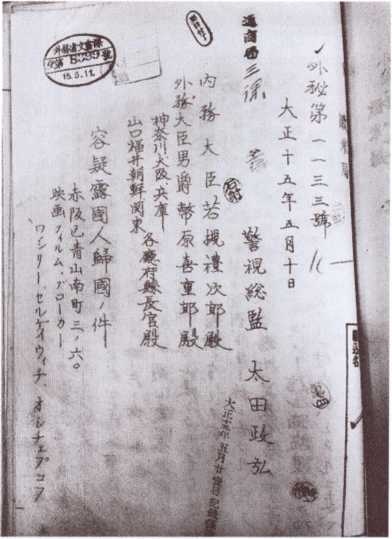 外秘第一一三三號
大正十五年五月十日
警視総監 太田政弘
内務大臣若槻禮次郎殿
外務大臣男爵幣原喜重郎殿
神奈川、大阪、兵庫
山口、福井、朝鮮、関東 各廳府縣長官殿
容疑露國人帰國ノ件
赤阪区青山南町三ノ六〇
映画フィルム、ブローカー
ワシリー、セルゲイウィチ、オシチェプコフ
通商局三課
外務省文書課
15.5.11.